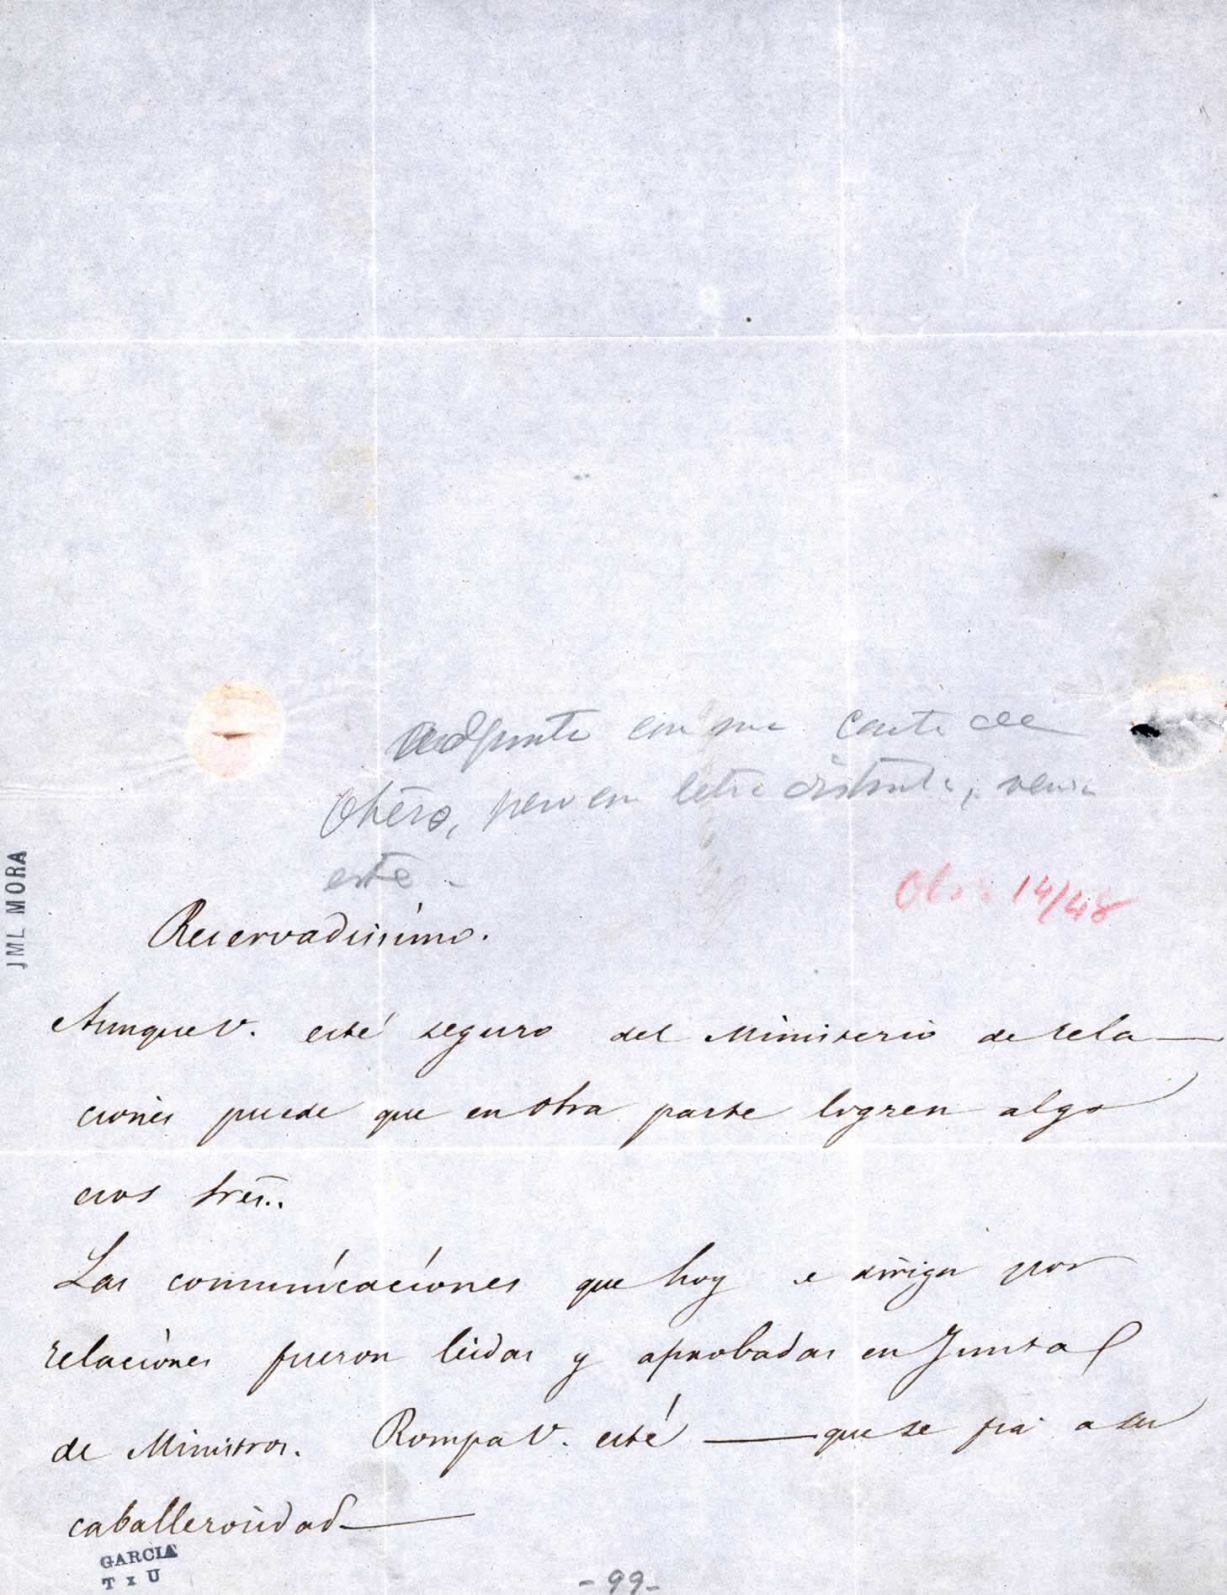 adjunta con una carta de
Otero, pero en letra distinta, venia
esta -
14/48
JML MORA
Reservadisimo.
Aunque V. esté seguro del Ministerio de rela—
ciones puede que en otra parte logren algo
esos tres..
Las comunicaciones que hoy se dirigen por
relaciones fueron leidas y aprobadas en Junta
de Ministros. Rompa V. esté — que se fia a su
caballerosidad—
GARCIA
T x U
-99-